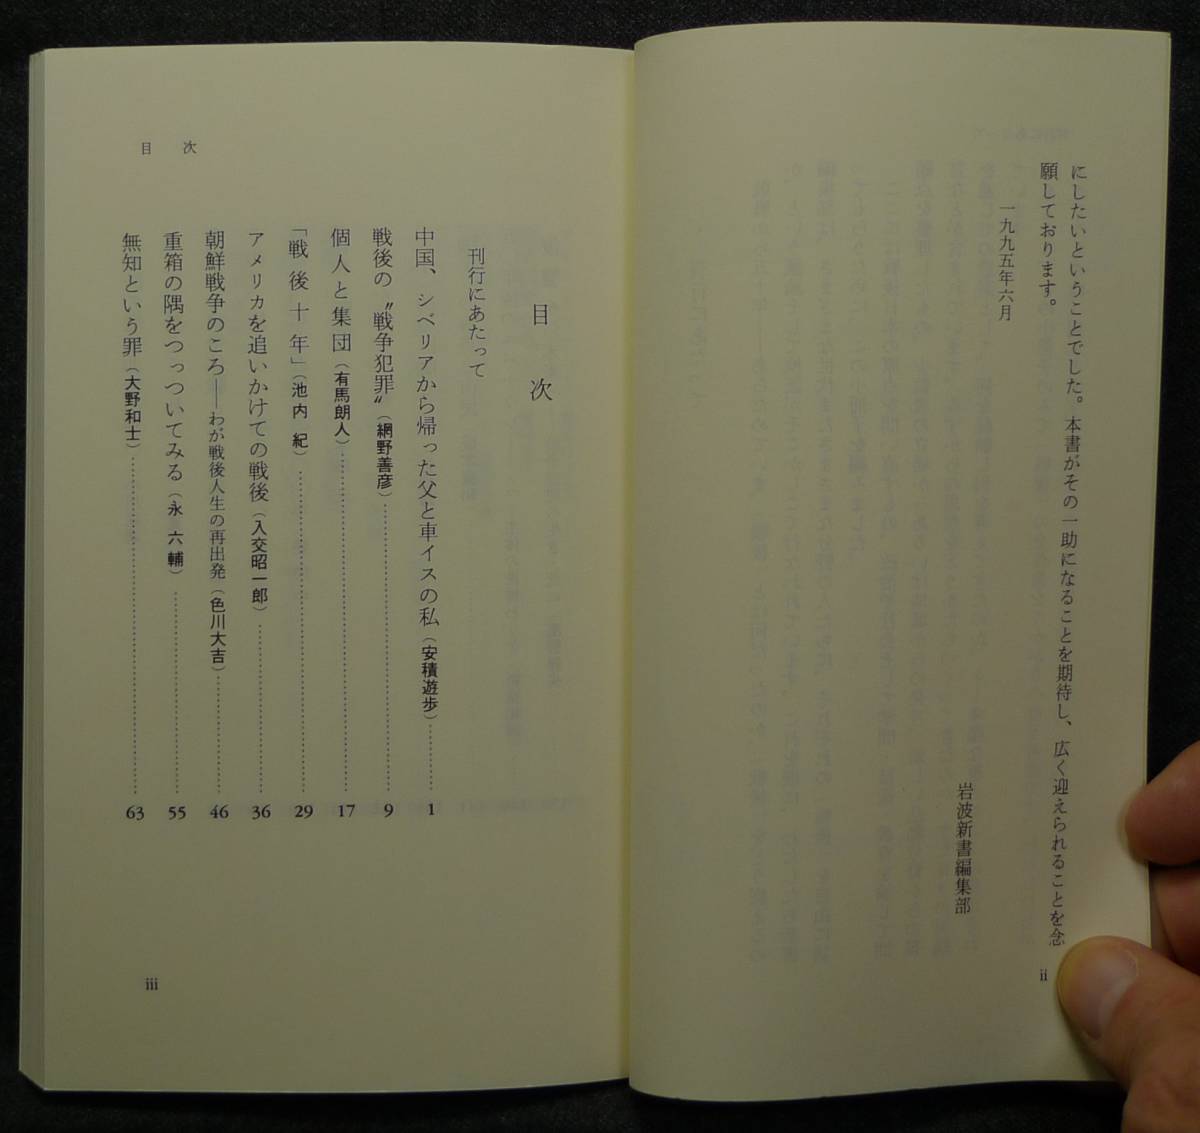 にしたいということでした。本書がその一助になることを期待し、広く迎えられることを念
願しております。
一九九五年六月
岩波新書編集部
ii
目次
目次
刊行にあたって
中国、シベリアから帰った父と車イスの私（安積遊歩）……………1
戦後の〝戦争犯罪〟（網野善彦）……………9
個人と集団（有馬朗人）……………17
「戦後十年」（池内 紀）……………29
アメリカを追いかけての戦後（入交昭一郎）……………36
朝鮮戦争のころ——わが戦後人生の再出発（色川大吉）……………46
重箱の隅をつっついてみる（永 六輔）……………55
無知という罪（大野和士）……………63
iii